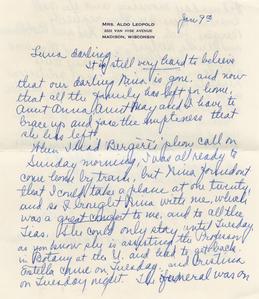 Jan 9th
MRS. ALDO LEOPOLD
2222 VAN HISE AVENUE
MADISON, WISCONSIN
Luna darling,
It is still very hard to believe
that our darling Nina is gone, and now
that all the family has left for home,
Aunt Anna, Aunt May and I have to
brace up and face the emptiness that
she has left.
When I had Bergere's phone call on
Sunday morning, I was all ready to
come home by train, but Nina found out
that I could take a plane at one twenty,
and so I brought Nina with me, which
was a great comfort to me, and to all the
Tias. She could only stay until Tuesday,
as you know she is assisting the Professor
in Botany at the U, and had to get back.
Estella came on Tuesday, and Cristina
on Tuesday night. The funeral was on